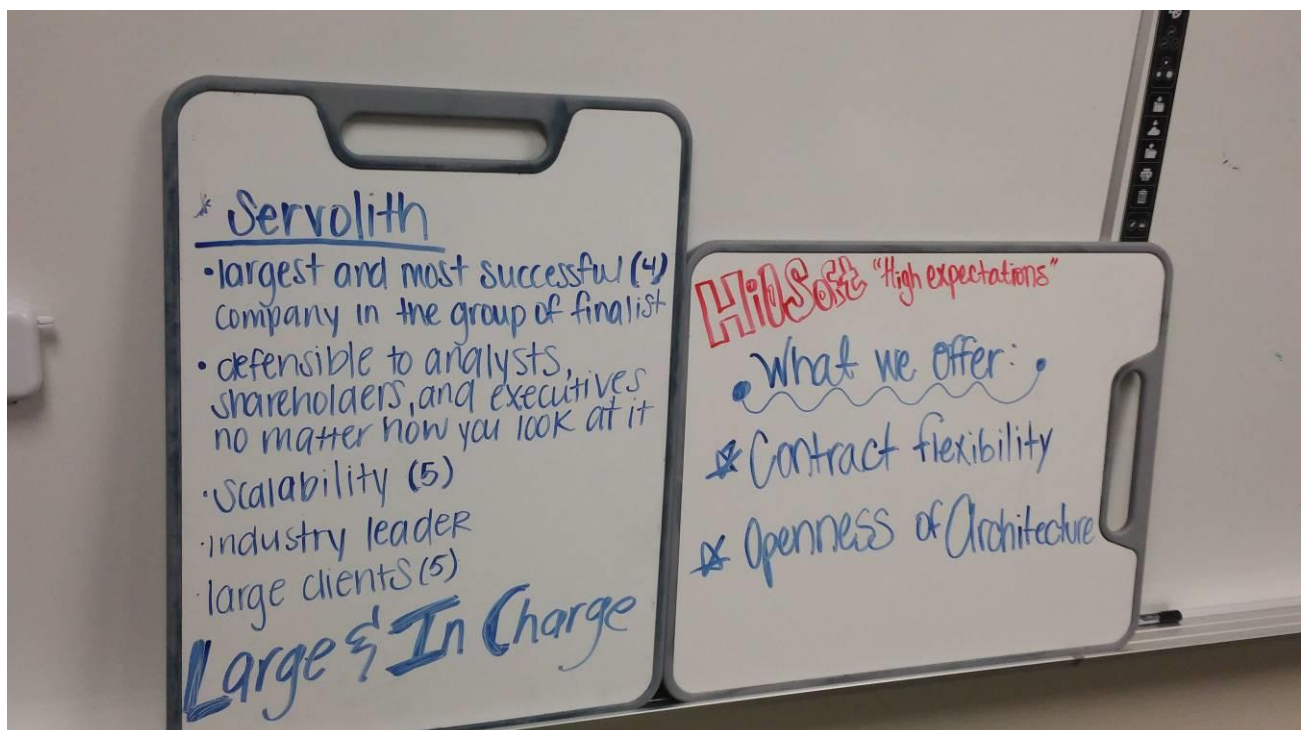 * Servolith
• largest and most successful (4)
company in the group of finalist
• defensible to analysts,
shareholders, and executives
no matter how you look at it
• Scalability (5)
• industry leader
• large clients (5)
Large & In Charge
HiOSoft "High expectations"
What we offer:
* Contract flexibility
* Openness of Architecture